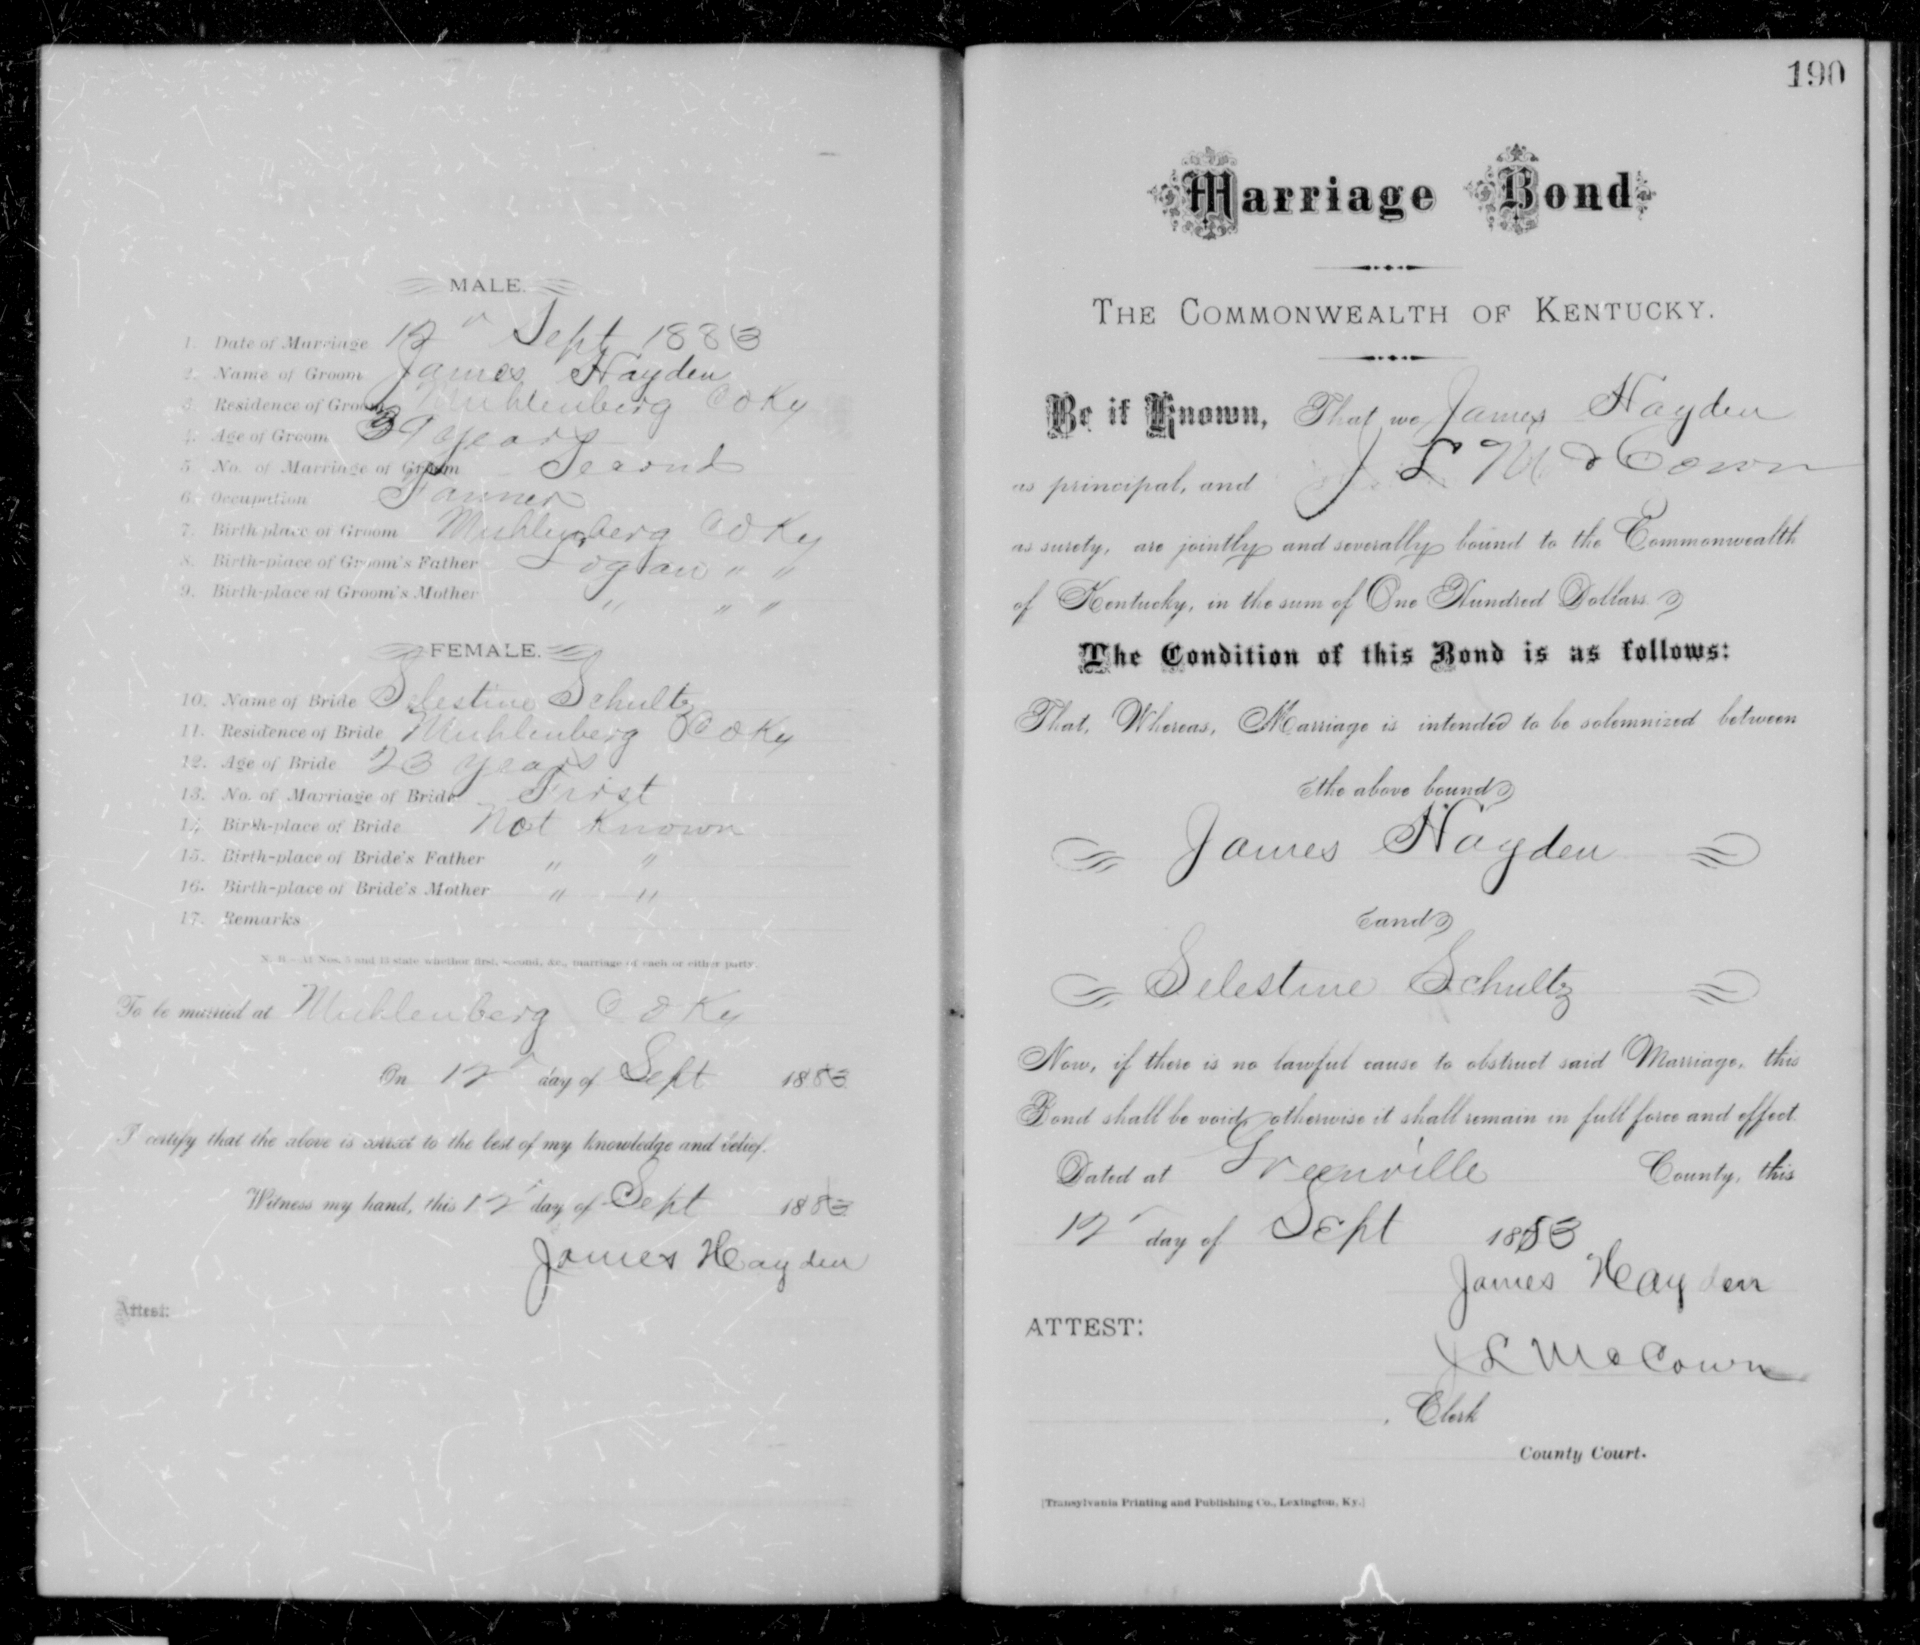 MALE.
1. Date of Marriage 12" Sept 1883
2. Name of Groom James Hayden
3. Residence of Groom Muhlenberg Co Ky
4. Age of Groom 39 years
5. No. of Marriage of Groom Second
6. Occupation Farmer
7. Birth-place of Groom Muhlenberg Co Ky
8. Birth-place of Groom's Father Logan " "
9. Birth-place of Groom's Mother " " "
FEMALE.
10. Name of Bride Selestine Schultz
11. Residence of Bride Muhlenberg Co Ky
12. Age of Bride 23 years
13. No. of Marriage of Bride First
14. Birth-place of Bride Not Known
15. Birth-place of Bride's Father " "
16. Birth-place of Bride's Mother " "
17. Remarks
N. B.—At Nos. 5 and 13 state whether first, second, &c., marriage of each or either party.
To be married at Muhlenberg Co Ky
On 12" day of Sept 1883
I certify that the above is correct to the best of my knowledge and belief.
Witness my hand, this 12" day of Sept 1883
James Hayden
Attest:
190
Marriage Bond
THE COMMONWEALTH OF KENTUCKY.
Be it Known, That we James Hayden
as principal, and J L McCown
as surety, are jointly and severally bound to the Commonwealth
of Kentucky, in the sum of One Hundred Dollars.
The Condition of this Bond is as follows:
That, Whereas, Marriage is intended to be solemnized between
the above bound
James Hayden
and
Selestine Schultz
Now, if there is no lawful cause to obstruct said Marriage, this
Bond shall be void, otherwise it shall remain in full force and effect.
Dated at Greenville County, this
12" day of Sept 1883
James Hayden
ATTEST:
J L McCown
, Clerk
County Court.
[Transylvania Printing and Publishing Co., Lexington, Ky.]